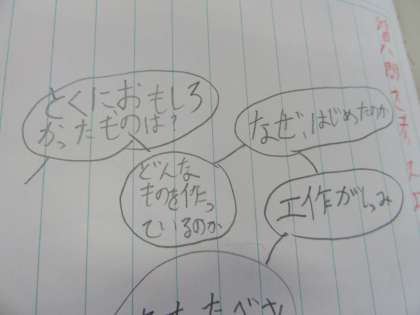 とくにおもしろ
かったものは?
なぜ、はじめたのか
どんな
ものを作っ
ているのか
工作がしゅみ